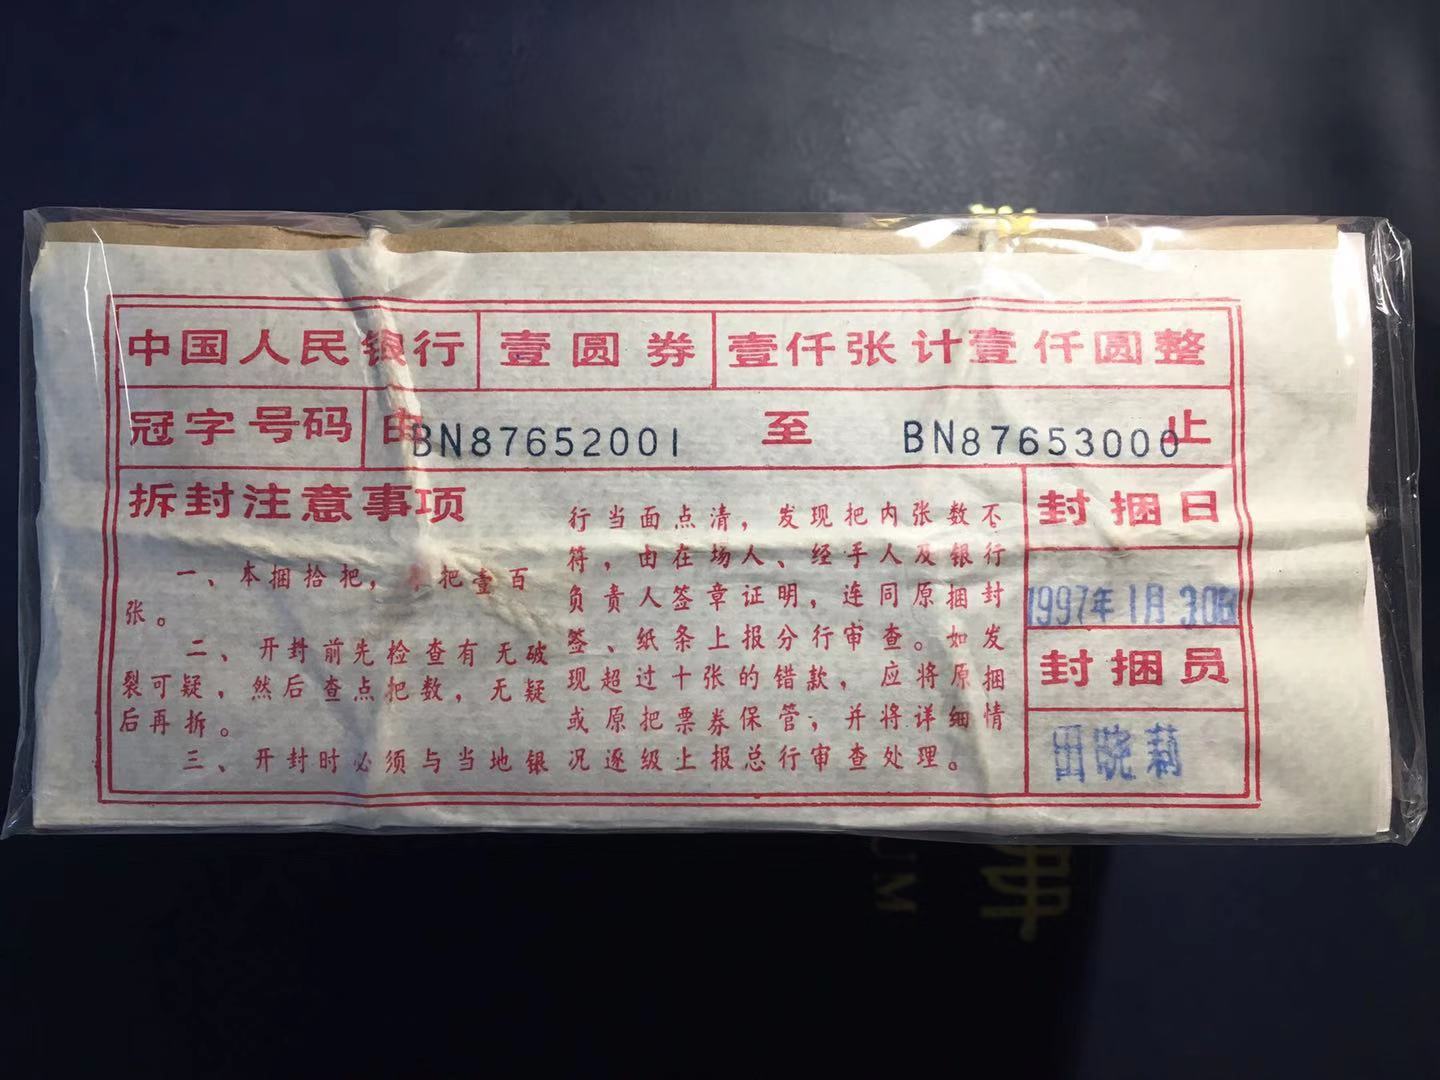 中国人民银行 壹圆券 壹仟张计壹仟圆整
冠字号码 由BN87652001 至 BN87653000止
拆封注意事项
一、本捆拾把，把壹百
张。
二、开封前先检查有无破
裂可疑，然后查点把数，无疑
后再拆。
三、开封时必须与当地银
行当面点清，发现把内张数不
符，由在场人、经手人及银行
负责人签章证明，连同原捆封
签、纸条上报分行审查。如发
现超过十张的错款，应将原捆
或原把票券保管，并将详细情
况逐级上报总行审查处理。
封捆日
1997年1月30日
封捆员
田晓莉
册
UM